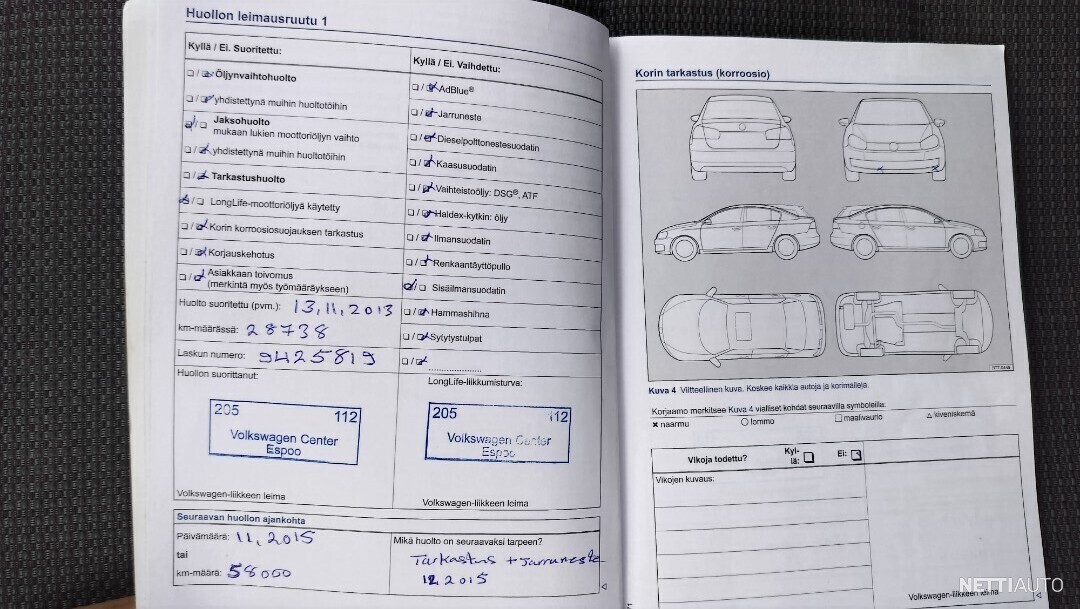 Huollon leimausruutu 1
Kyllä / Ei. Suoritettu:
Öljynvaihtohuolto
yhdistettynä muihin huoltotöihin
Jaksohuolto
mukaan lukien moottoriöljyn vaihto
yhdistettynä muihin huoltotöihin
Tarkastushuolto
LongLife-moottoriöljyä käytetty
Korin korroosiosuojauksen tarkastus
Korjauskehotus
Asiakkaan toivomus
(merkintä myös työmääräykseen)
Huolto suoritettu (pvm.): 13.11.2013
km-määrässä: 28738
Laskun numero: 9425819
Huollon suorittanut:
205 112
Volkswagen Center
Espoo
Volkswagen-liikkeen leima
Kyllä / Ei. Vaihdettu:
AdBlue®
Jarruneste
Dieselpolttonestesuodatin
Kaasusuodatin
Vaihteistoöljy: DSG®, ATF
Haldex-kytkin: öljy
Ilmansuodatin
Renkaantäyttöpullo
Sisäilmansuodatin
Hammashihna
Sytytystulpat
LongLife-liikkumisturva:
205 112
Volkswagen Center
Espoo
Volkswagen-liikkeen leima
Seuraavan huollon ajankohta
Päivämäärä: 11.2015
tai
km-määrä: 58000
Mikä huolto on seuraavaksi tarpeen?
Tarkastus + Jarruneste
11.2015
Korin tarkastus (korroosio)
Kuva 4 Viitteellinen kuva. Koskee kaikkia autoja ja korimalleja.
Korjaamo merkitsee Kuva 4 vialliset kohdat seuraavilla symboleilla:
× naarmu ○ lommo □ maalivaurio △ kiveniskemä
Vikoja todettu? Kyl-
lä: Ei:
Vikojen kuvaus:
Volkswagen-liikkeen leima
NETTIAUTO